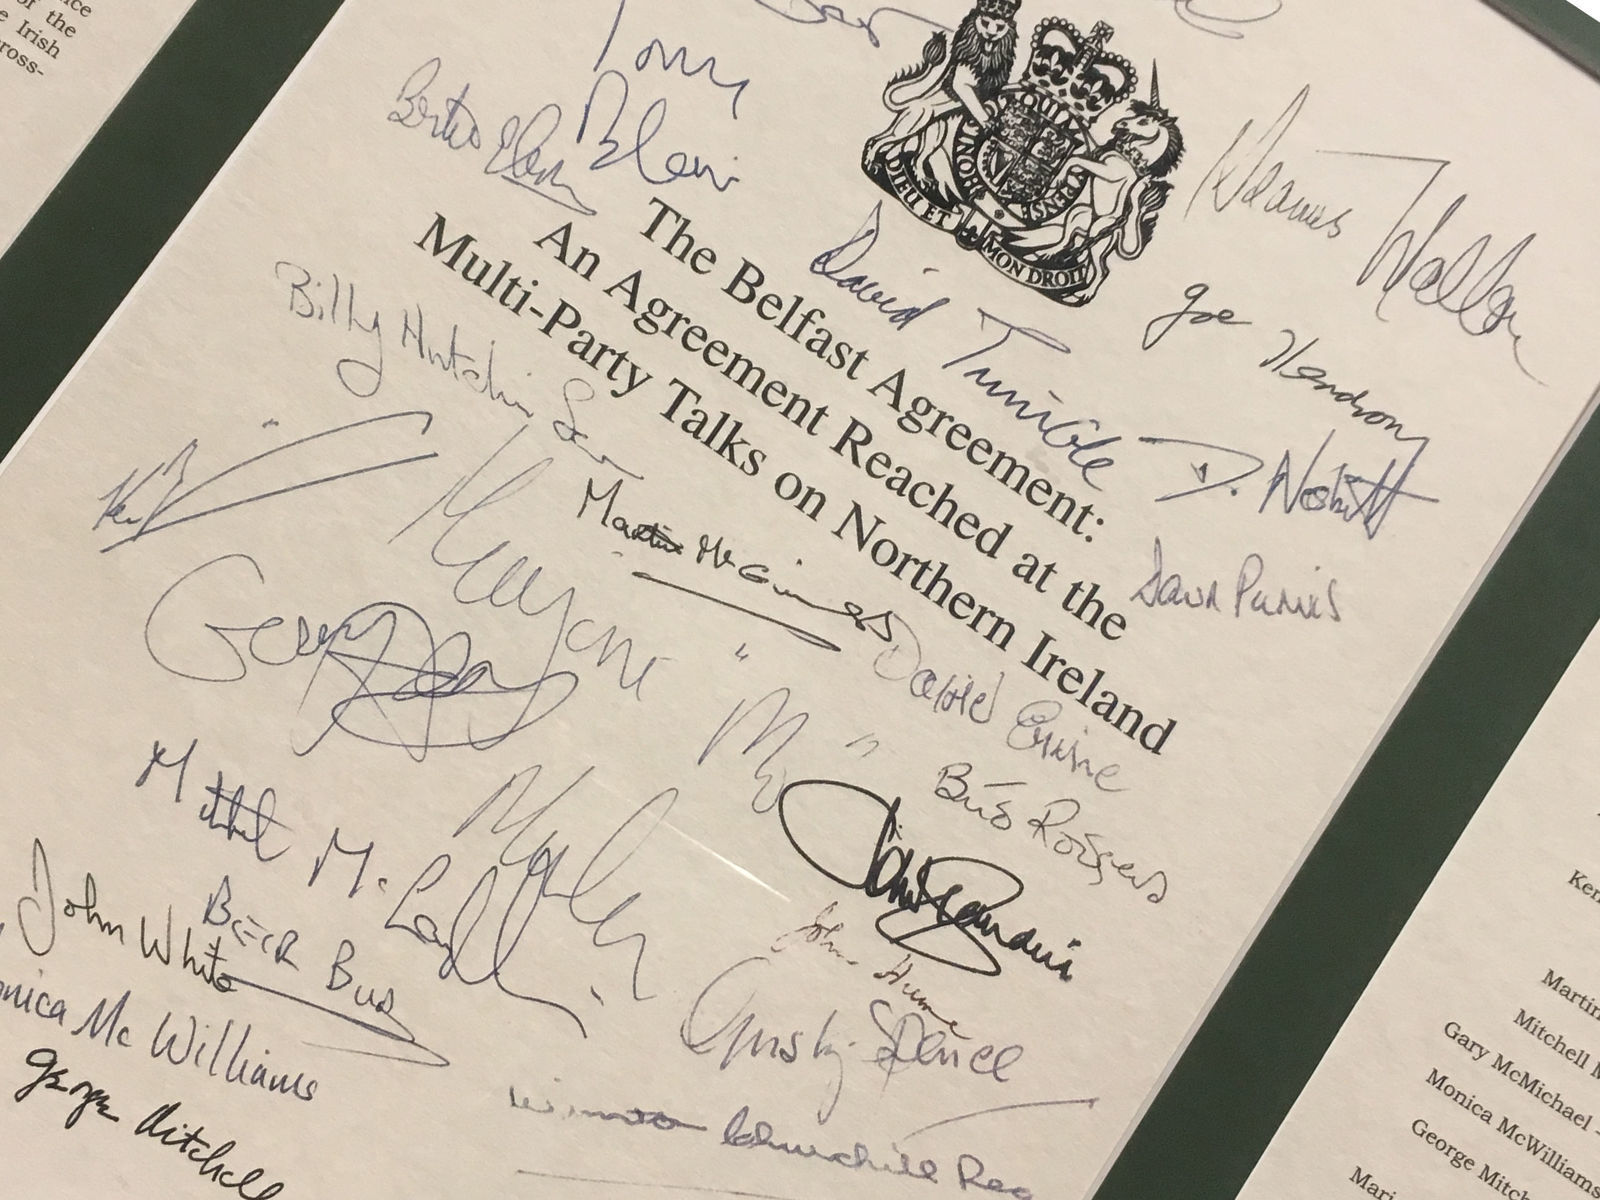 of the
Irish
cross-
Tony
Blair
Bertie Ahern
QUI
DIEU ET MON DROIT
Seamus Mallon
The Belfast Agreement:
An Agreement Reached at the
Multi-Party Talks on Northern Ireland
David Trimble
Joe Hendron
Billy Hutchinson
D. Nesbitt
Martin McGuinness
Dawn Purvis
Gerry Adams
David Ervine
Bríd Rodgers
Mitchel McLaughlin
John White
John Hume
Gusty Spence
Monica McWilliams
George Mitchell
Winston Churchill Rea
Ken
Martin
Mitchell M
Gary McMichael -
Monica McWilliams
George Mitch